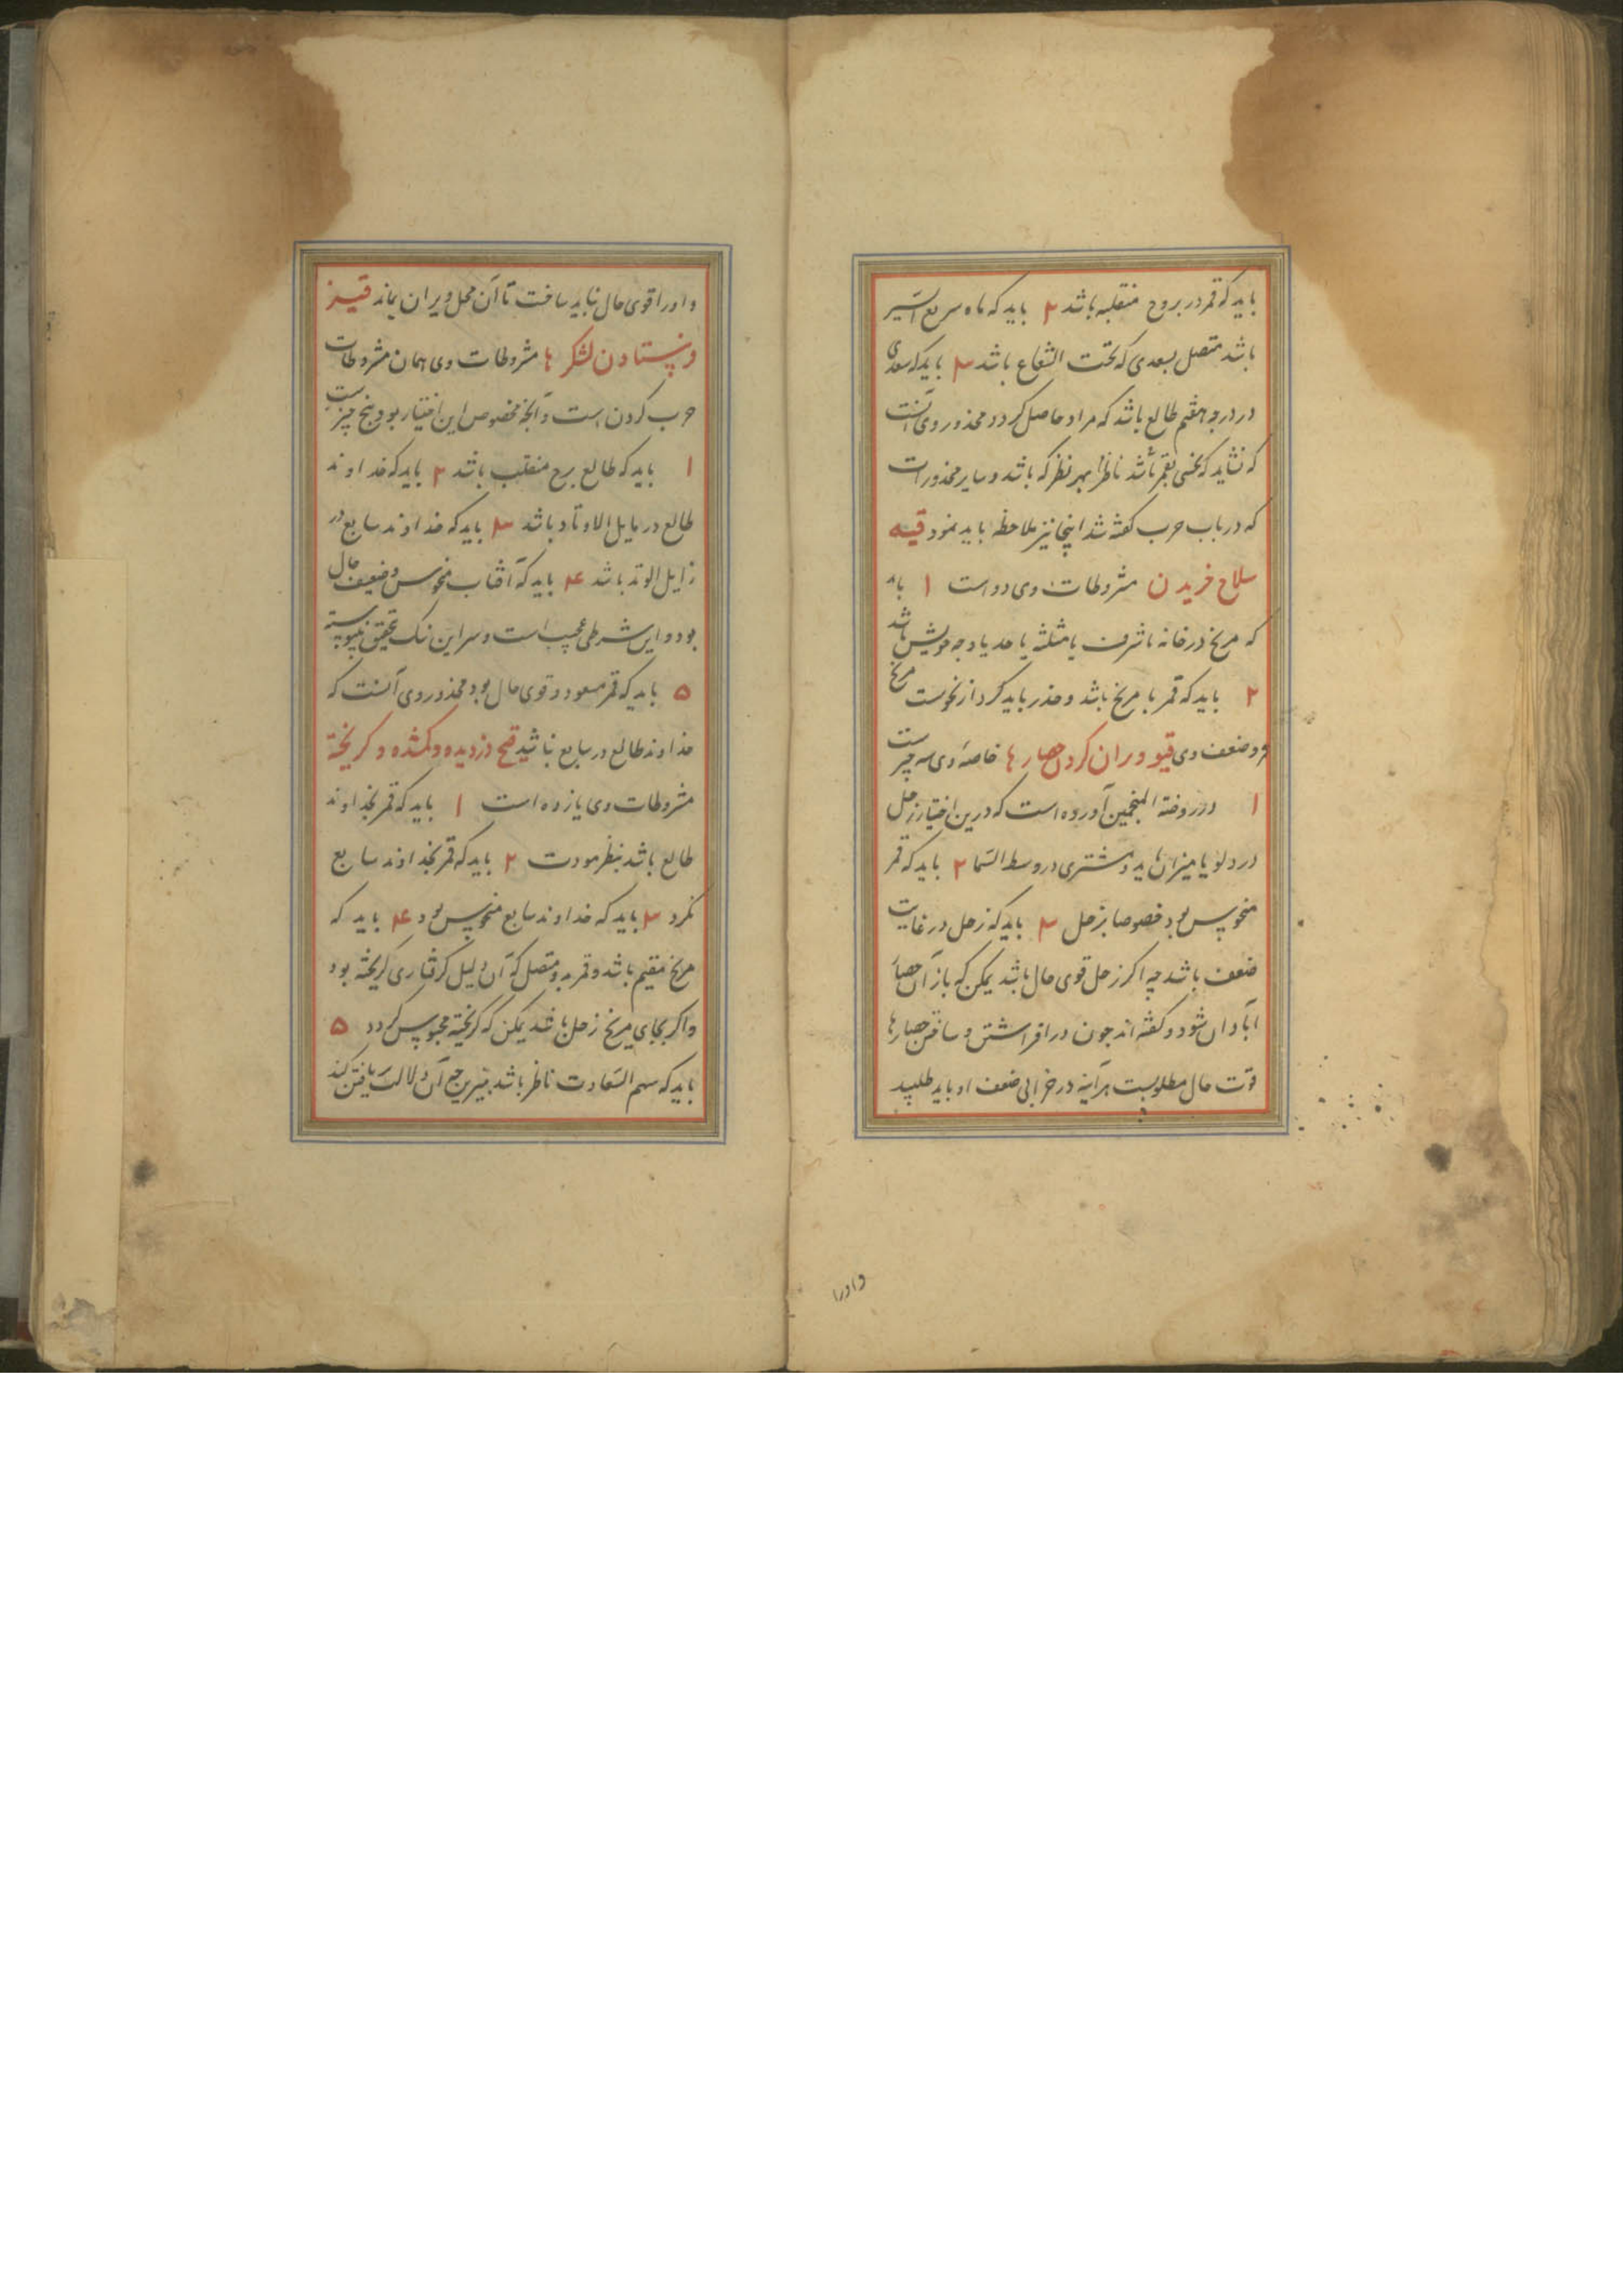 باید که قمر در بروج منقلبه باشد ۲ باید که ماه سریع السیر
باشد متصل بسعدی که تحت الشعاع باشد ۳ باید که سعدی
در درجه هفتم طالع باشد که مراد حاصل کردد محذور وی آنست
که نشاید که نحسی بقمر باشد ناظر بهر نظر که باشد و سایر محذورات
که در باب حرب کفته شد اینجا نیز ملاحظه باید نمود قیه
سلاح خریدن مشروطات وی دو است ۱ باید
که مریخ در خانه یا شرف یا مثلثه یا حد یا وجه خویش باشد
۲ باید که قمر با مریخ باشد و حذر باید کرد از نحوست مریخ
و ضعف وی قیو ویران کردن حصارها خاصه وی سه چیزست
۱ در روضة المنجمین آورده است که درین اختیار زحل
در دلو یا میزان باید و مشتری در وسط السما ۲ باید که قمر
منحوس بود خصوصا بزحل ۳ باید که زحل در غایت
ضعف باشد چه اکر زحل قوی حال باشد یمکن که باز آن حصار
آبادان شود و کفته اند چون در افراشتن و ساختن حصارها
قوت حال مطلوبست هرآینه در خرابی ضعف او باید طلبید
و اورا
و اورا قوی حال نباید ساخت تا آن محل ویران بماند قیز
فرستادن لشکرها مشروطات وی همان مشروطات
حرب کردن است و آنچه مخصوص این اختیار بود پنج چیزست
۱ باید که طالع برج منقلب باشد ۲ باید که خداوند
طالع در مایل الاوتاد باشد ۳ باید که خداوند سابع در
زایل الوتد باشد ۴ باید که آفتاب منحوس و ضعیف حال
بود و این شرطی عجیب است و سر این نیک تحقیق نپیوسته
۵ باید که قمر مسعود و قوی حال بود محذور وی آنست که
خداوند طالع در سابع نباشد قیح دزدیده و کمشده و کریخته
مشروطات وی یازده است ۱ باید که قمر بخداوند
طالع باشد بنظر مودت ۲ باید که قمر بخداوند سابع
نکرد ۳ باید که خداوند سابع منحوس بود ۴ باید که
مریخ مقیم باشد و قمر بدو متصل که آن دلیل کرفتاری کریخته بود
و اکر بجای مریخ زحل باشد یمکن که کریخته محبوس کردد ۵
باید که سهم السعادت ناظر باشد بنیرین چه آن دلالت یافتن کند